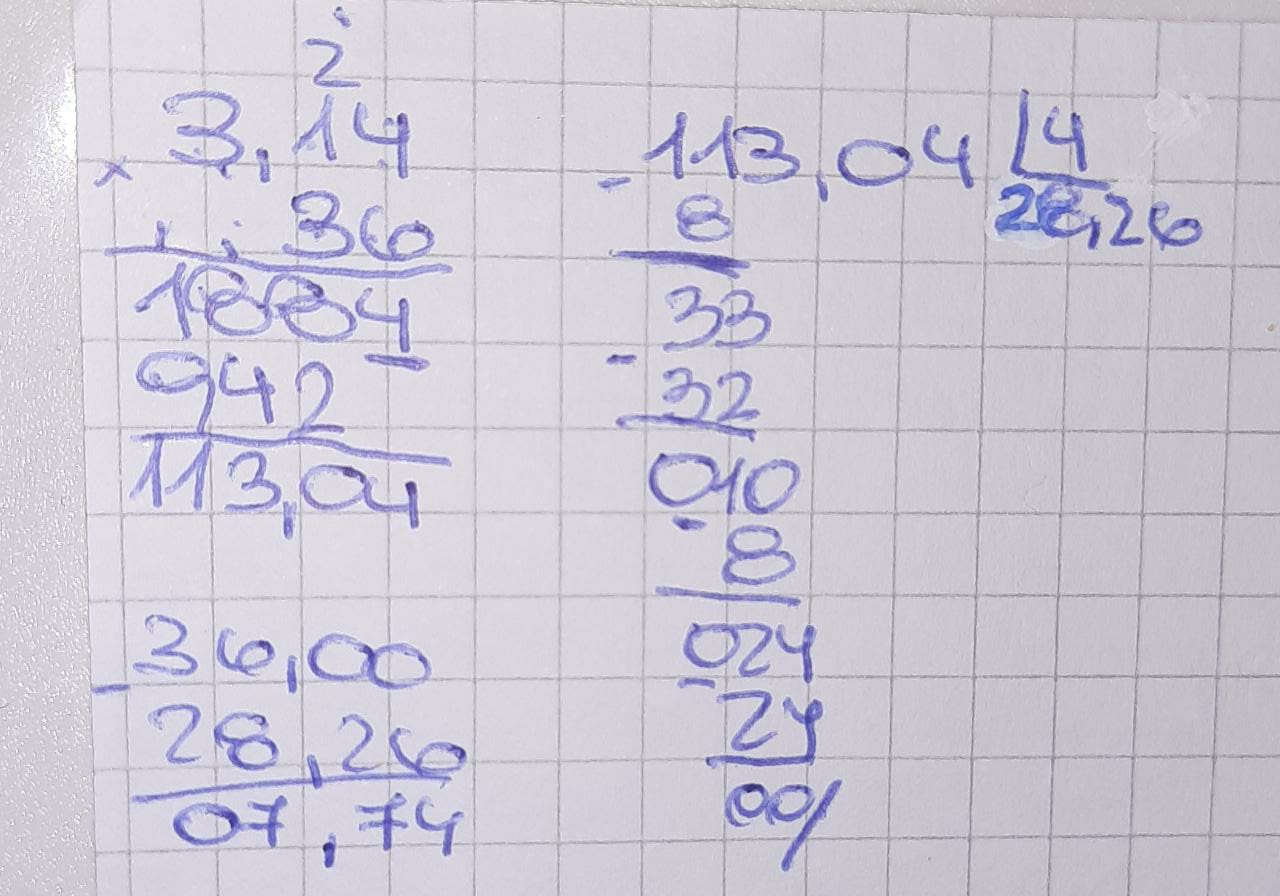 2
3,14
x 36
1884
942
113,04
- 36,00
28,26
07,74
- 113,04 4
8 28,26
33
- 32
010
- 8
024
- 24
00/